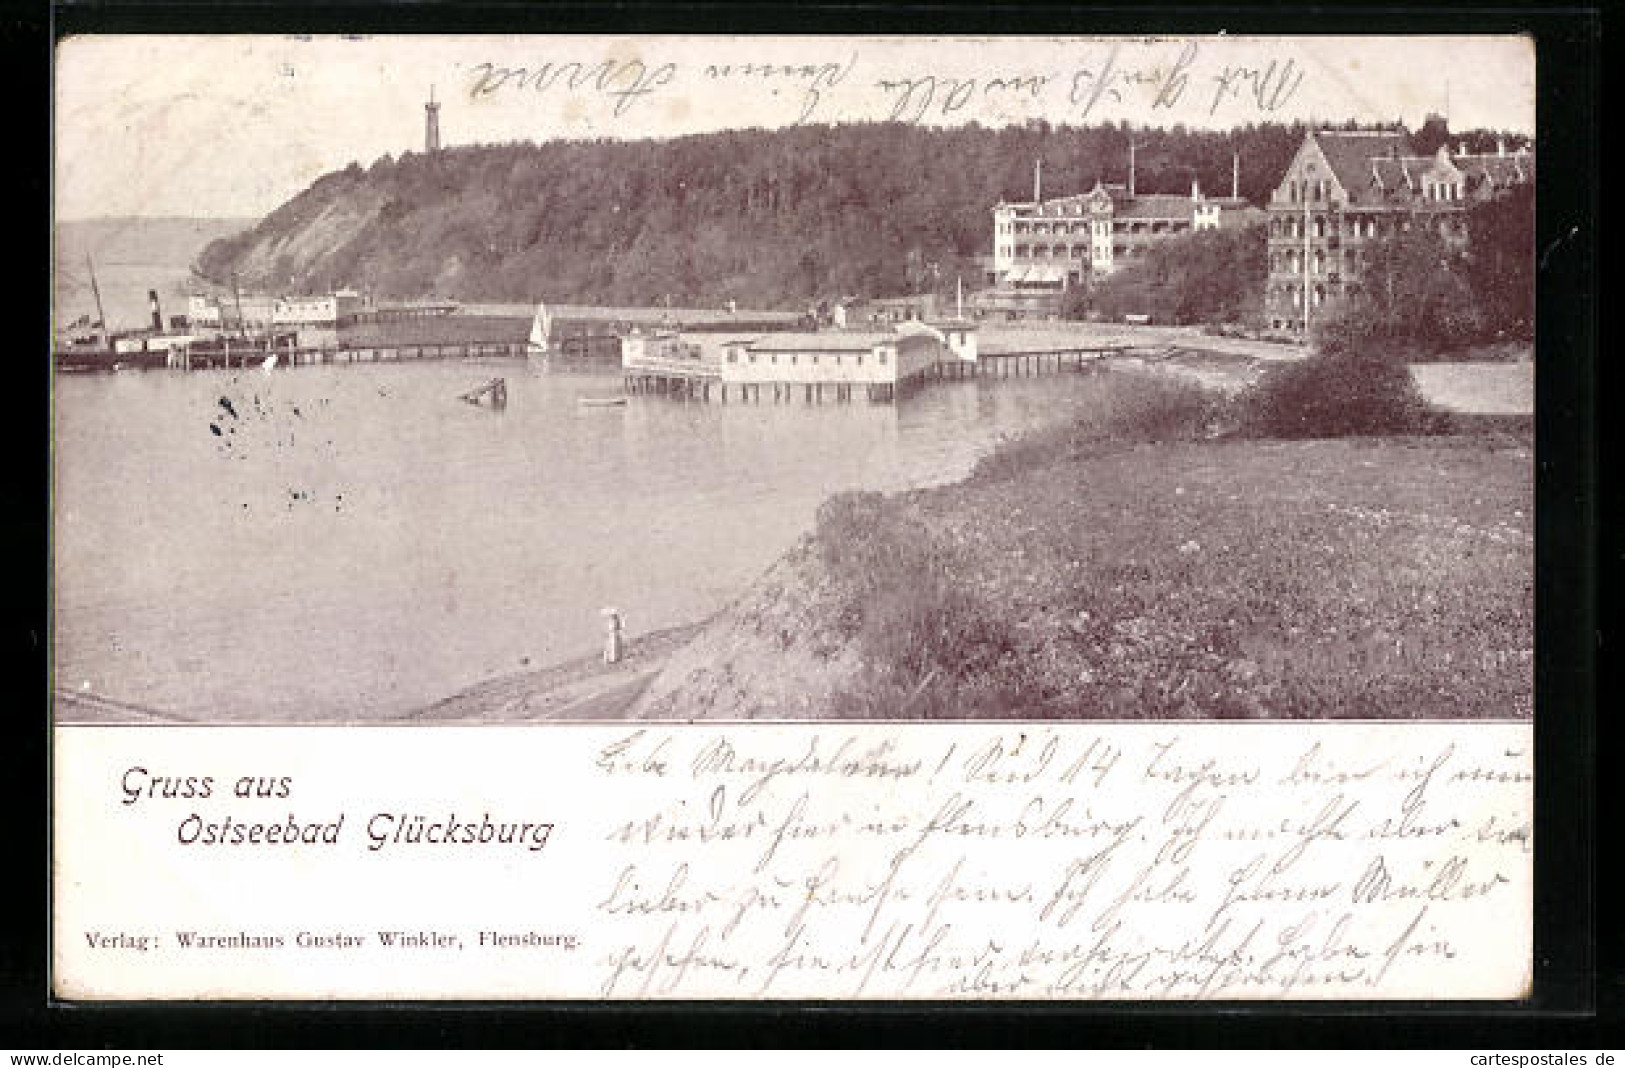 Mit Gruß an Alle Deine Anna
Gruss aus
Ostseebad Glücksburg
Verlag: Warenhaus Gustav Winkler, Flensburg.
Liebe Magdalena! Seid 14 Tagen bin ich nun
wieder hier in Flensburg. Ich möchte aber
lieber zu Hause sein. Ich habe Müller
gesehen, sie ist hier verheiratet. Habe sie
aber nicht gesprochen.
www.delcampe.net
cartespostales_de